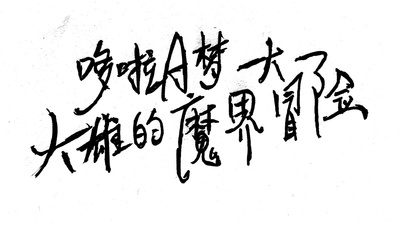 哆啦A梦大
大雄的魔界冒险